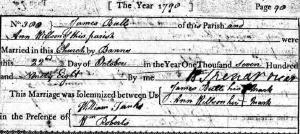 [ The Year 1790 ] Page 90
No 300 James Butt of this Parish and
Ann Willson of this parish
were
Married in this Church by Banns
this 22nd Day of October in the Year One Thousand Seven Hundred
and Ninety Eight by me
This Marriage was solemnized between Us James Butt his mark
Ann Willson her mark
in the Presence of William Tanks
Wm Roberts